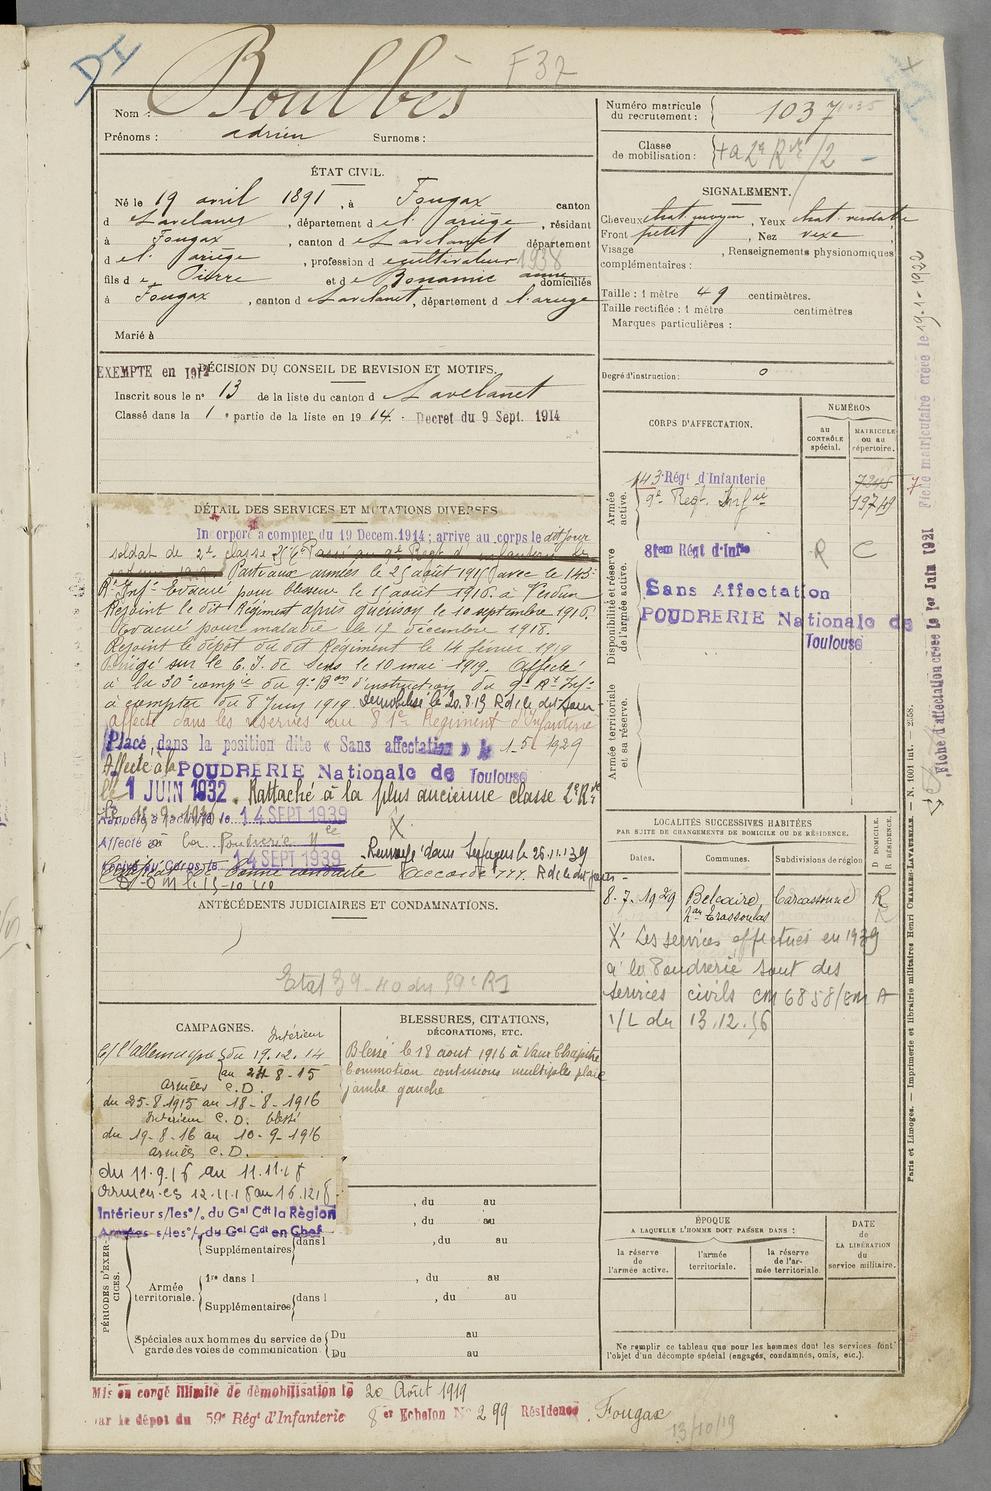 DI
Boulbès
F 32
Nom :
Prénoms : adrien Surnoms :
Numéro matricule du recrutement : 1037
Classe de mobilisation : /2
ÉTAT CIVIL.
Né le 19 avril 1891, à Fougax canton
d Lavelanet, département de l'ariège, résidant
à Fougax, canton de Lavelanet département
de l'ariège, profession de cultivateur 1938
fils de Pierre et de Bonamic anne domiciliés
à Fougax, canton de Lavelanet, département de l'ariège
Marié à
SIGNALEMENT.
Cheveux chat moyen, Yeux chat verdatre
Front petit, Nez vexe
Visage , Renseignements physionomiques
complémentaires :
Taille : 1 mètre 49 centimètres.
Taille rectifiée : 1 mètre centimètres
Marques particulières :
Degré d'instruction : 0
EXEMPTE en 1912
DÉCISION DU CONSEIL DE REVISION ET MOTIFS.
Inscrit sous le n° 13 de la liste du canton d Lavelanet
Classé dans la 1e partie de la liste en 1914. Decret du 9 Sept. 1914
CORPS D'AFFECTATION.
NUMÉROS
au CONTRÔLE spécial.
MATRICULE ou au répertoire.
Armée active.
143e Régt d'Infanterie 7245
9e Regt Infie 19749
Disponibilité et réserve de l'armée active.
81em Régt d'Infie R C
Sans Affectation
POUDRERIE Nationale de
Toulouse
Armée territoriale et sa réserve.
DÉTAIL DES SERVICES ET MUTATIONS DIVERSES
Incorporé a compter du 19 Decem. 1914 ; arrivé au corps le dit jour
soldat de 2e classe Passé au 9e Regt d'infanterie le
Parti aux armées le 25 août 1915 avec le 143e
Rt Infie Evacué pour blessure le 18 août 1916 à Verdun
Rejoint le dit Régiment après guérison le 10 septembre 1916.
Evacué pour maladie le 17 décembre 1918.
Rejoint le dépôt du dit Régiment le 14 fevrier 1919
Dirigé sur le C.I. de Sens le 10 mai 1919. Affecté
à la 30e compie du 9e Bon d'instruction du 9e Rt Infie
à compter du 8 Juin 1919. Demobilisé le 20.8.19 Rdc le dit jour
affecté dans les réserves au 81e Regiment d'Infanterie
Placé dans la position dite « Sans affectation » le 1-5-1929
Affecté à la POUDRERIE Nationale de Toulouse
le 1 JUIN 1932. Rattaché à la plus ancienne classe 2e Rve
Rappelé à l'activité le 14 SEPT 1939
Affecté à la Poudrerie Nle X
Arrivé au Corps le 14 SEPT 1939 Renvoyé dans ses foyers le 26.11.39
Certificat de bonne conduite Accordé Rdc le dit jour
ANTÉCÉDENTS JUDICIAIRES ET CONDAMNATIONS.
Etat 39-40 du 59e RI
LOCALITÉS SUCCESSIVES HABITÉES
PAR SUITE DE CHANGEMENTS DE DOMICILE OU DE RÉSIDENCE.
Dates. Communes. Subdivisions de région D DOMICILE. R RÉSIDENCE.
8.7.1929 Belcaire, Carcassonne R
X Les services effectués en 1939
à la Poudrerie sont des
services civils CM 6858/EM A
1/L du 13.12.56
CAMPAGNES.
Intérieur
C/ l'allemagne du 19.12.14
au 24 8-15
armées C.D.
du 25-8-1915 au 18-8-1916
Intérieur C.D. blessé
du 19-8-16 au 10-9-1916
armées C.D.
du 11.9.16 au 11.11.18
12.11.18 au 16.12.18
Intérieur s/les o/ du Gal Cdt la Région
Armées s/les o/ du Gal Cdt en Chef
BLESSURES, CITATIONS,
DÉCORATIONS, ETC.
Blessé le 18 aout 1916 à Vaux Chapitre
Commotion contusions multiples plaie
jambe gauche
PÉRIODES D'EXERCICES.
, du au
, du au
Supplémentaires dans l , du au
Armée territoriale.
1re dans l , du au
Supplémentaires dans l , du au
Spéciales aux hommes du service de garde des voies de communication.
Du au
Du au
ÉPOQUE
A LAQUELLE L'HOMME DOIT PASSER DANS :
la réserve de l'armée active.
l'armée territoriale.
la réserve de l'armée territoriale.
DATE de LA LIBÉRATION du service militaire.
Ne remplir ce tableau que pour les hommes dont les services font
l'objet d'un décompte spécial (engagés, condamnés, omis, etc.).
Mis en congé illimité de démobilisation le 20 Août 1919
par le dépôt du 59e Régt d'Infanterie 8er Echelon No 299 Résidence Fougax
13/10/19
Fiche matriculaire créée le 19-1-1922
Fiche d'affectation créée le 1er Juin 1921
Paris et Limoges. — Imprimerie et librairie militaires Henri CHARLES-LAVAUZELLE. — N. 1601 int. — 2558.